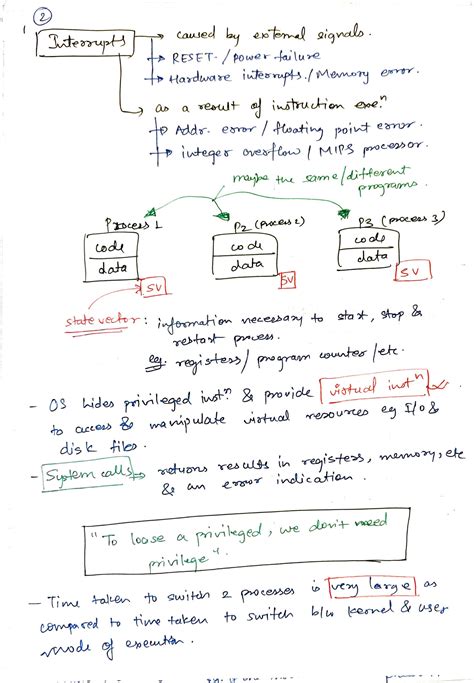 2
Interrupts → caused by external signals.
→ RESET. / power failure
→ Hardware interrupts. / Memory error.
→ as a result of instruction exe.ⁿ
→ Addr. error / floating point error.
→ integer overflow / MIPS processor.
maybe the same/different
programs.
Process 1 P2 (Process 2) P3 (process 3)
code code code
data data data
SV SV SV
state vector : information necessary to start, stop &
restart process.
eg. registers / program counter / etc.
- OS hides privileged instⁿ & provide virtual instⁿ
to access & manipulate virtual resources eg I/O &
disk files.
- System calls → returns results in registers, memory, etc
& an error indication.
"To loose a privileged, we don't need
privilege".
- Time taken to switch 2 processes is very large as
compared to time taken to switch b/w kernel & user
mode of execution.